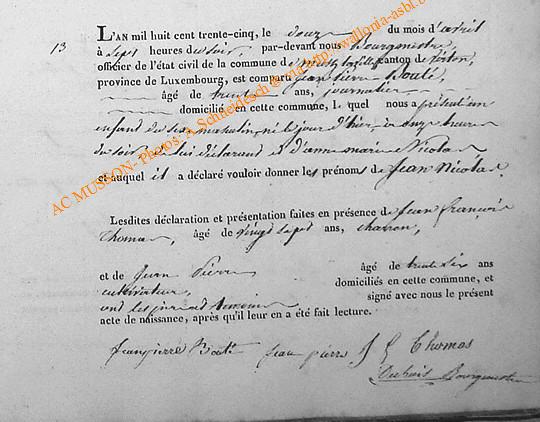 13
L'AN mil huit cent trente-cinq, le douze du mois d'avril
à sept heures du soir, par-devant nous Bourgmestre
officier de l'état civil de la commune de canton de Virton,
province de Luxembourg, est comparu jean pierre Boulé
âgé de trente ans, journalier
domicilié en cette commune, lequel nous a présenté un
enfant du sexe masculin, né le jour d'hier, à onze heures
du soir, de lui déclarant et d'anne marie Nicolas
et auquel il a déclaré vouloir donner les prénoms de Jean Nicolas.
Lesdites déclaration et présentation faites en présence de Jean françois
thomas, âgé de vingt sept ans, charron,
et de Jean Pierre âgé de trente six ans
cultivateur, domiciliés en cette commune, et
ont les témoins signé avec nous le présent
acte de naissance, après qu'il leur en a été fait lecture.
Jeanpierre jean pierre J f Thomas
Bourgmestre
AC MUSSON- Photos: A. Schneidesch © via http://wallonia-asbl.